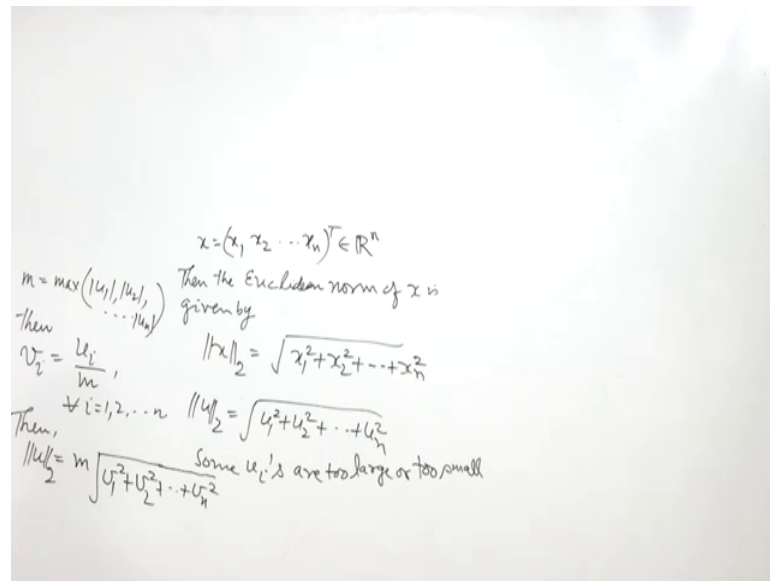 x = (x₁ x₂ ⋯ xₙ)ᵀ ∈ ℝⁿ
Then the Euclidean norm of x is
given by
||x||₂ = √(x₁² + x₂² + ⋯ + xₙ²)
||u||₂ = √(u₁² + u₂² + ⋯ + uₙ²)
Some uᵢ's are too large or too small
m = max(|u₁|, |u₂|,
⋯ |uₙ|)
Then
vᵢ = uᵢ/m,
∀ i = 1, 2, ⋯ n
Then,
||u||₂ = m √(v₁² + v₂² + ⋯ + vₙ²)